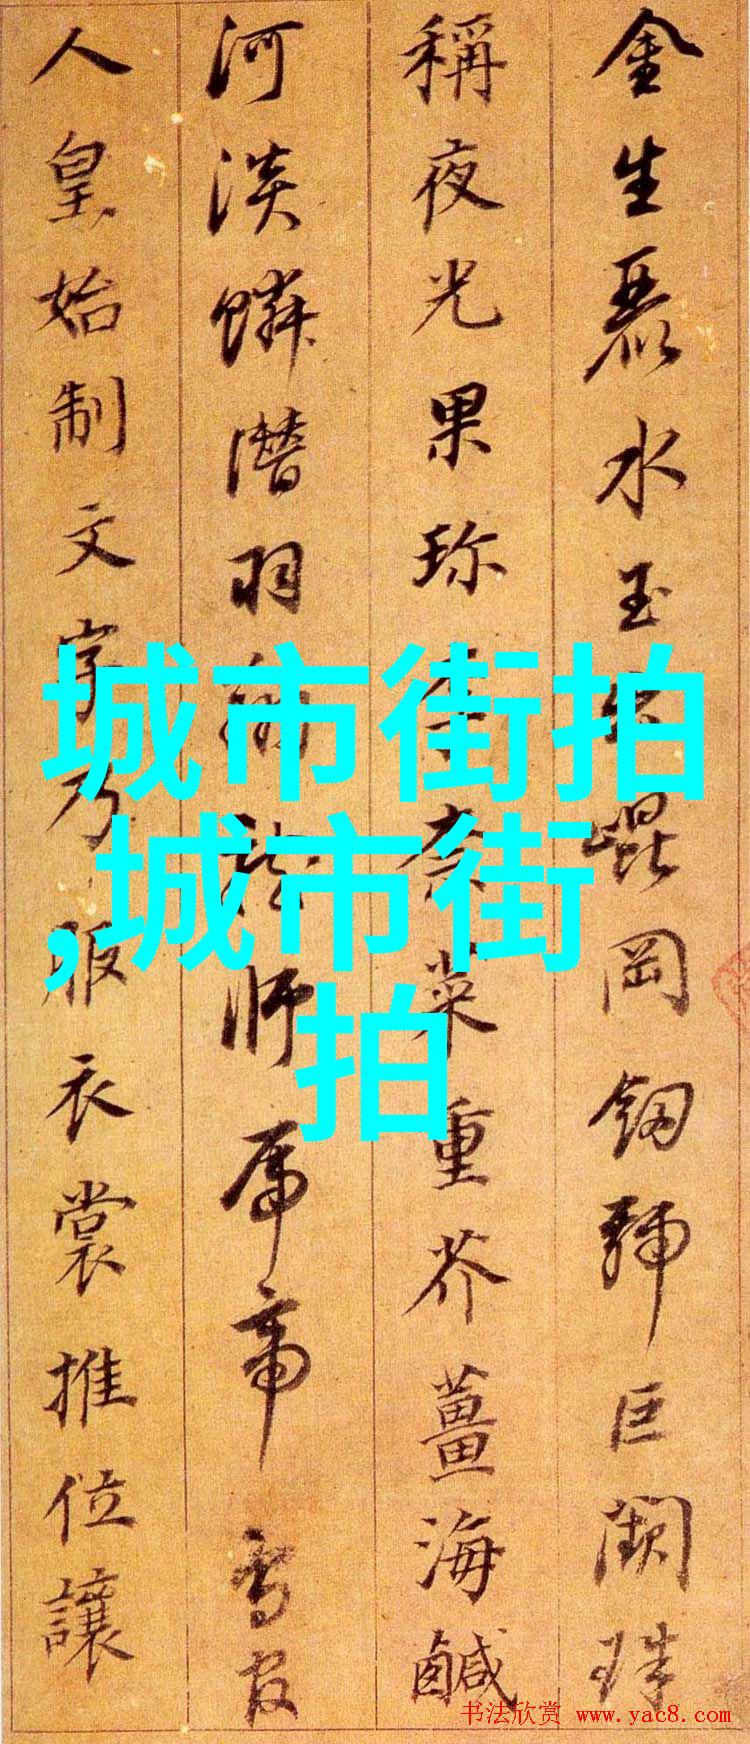 金生麗水玉出崐岡劒號巨闕珠
稱夜光果珍李柰菜重芥薑海鹹
河淡鱗潛羽翔龍師帝鳥官
人皇始制文字乃服衣裳推位讓
城市街拍
,城市街
拍
书法欣赏 www.yac8.com